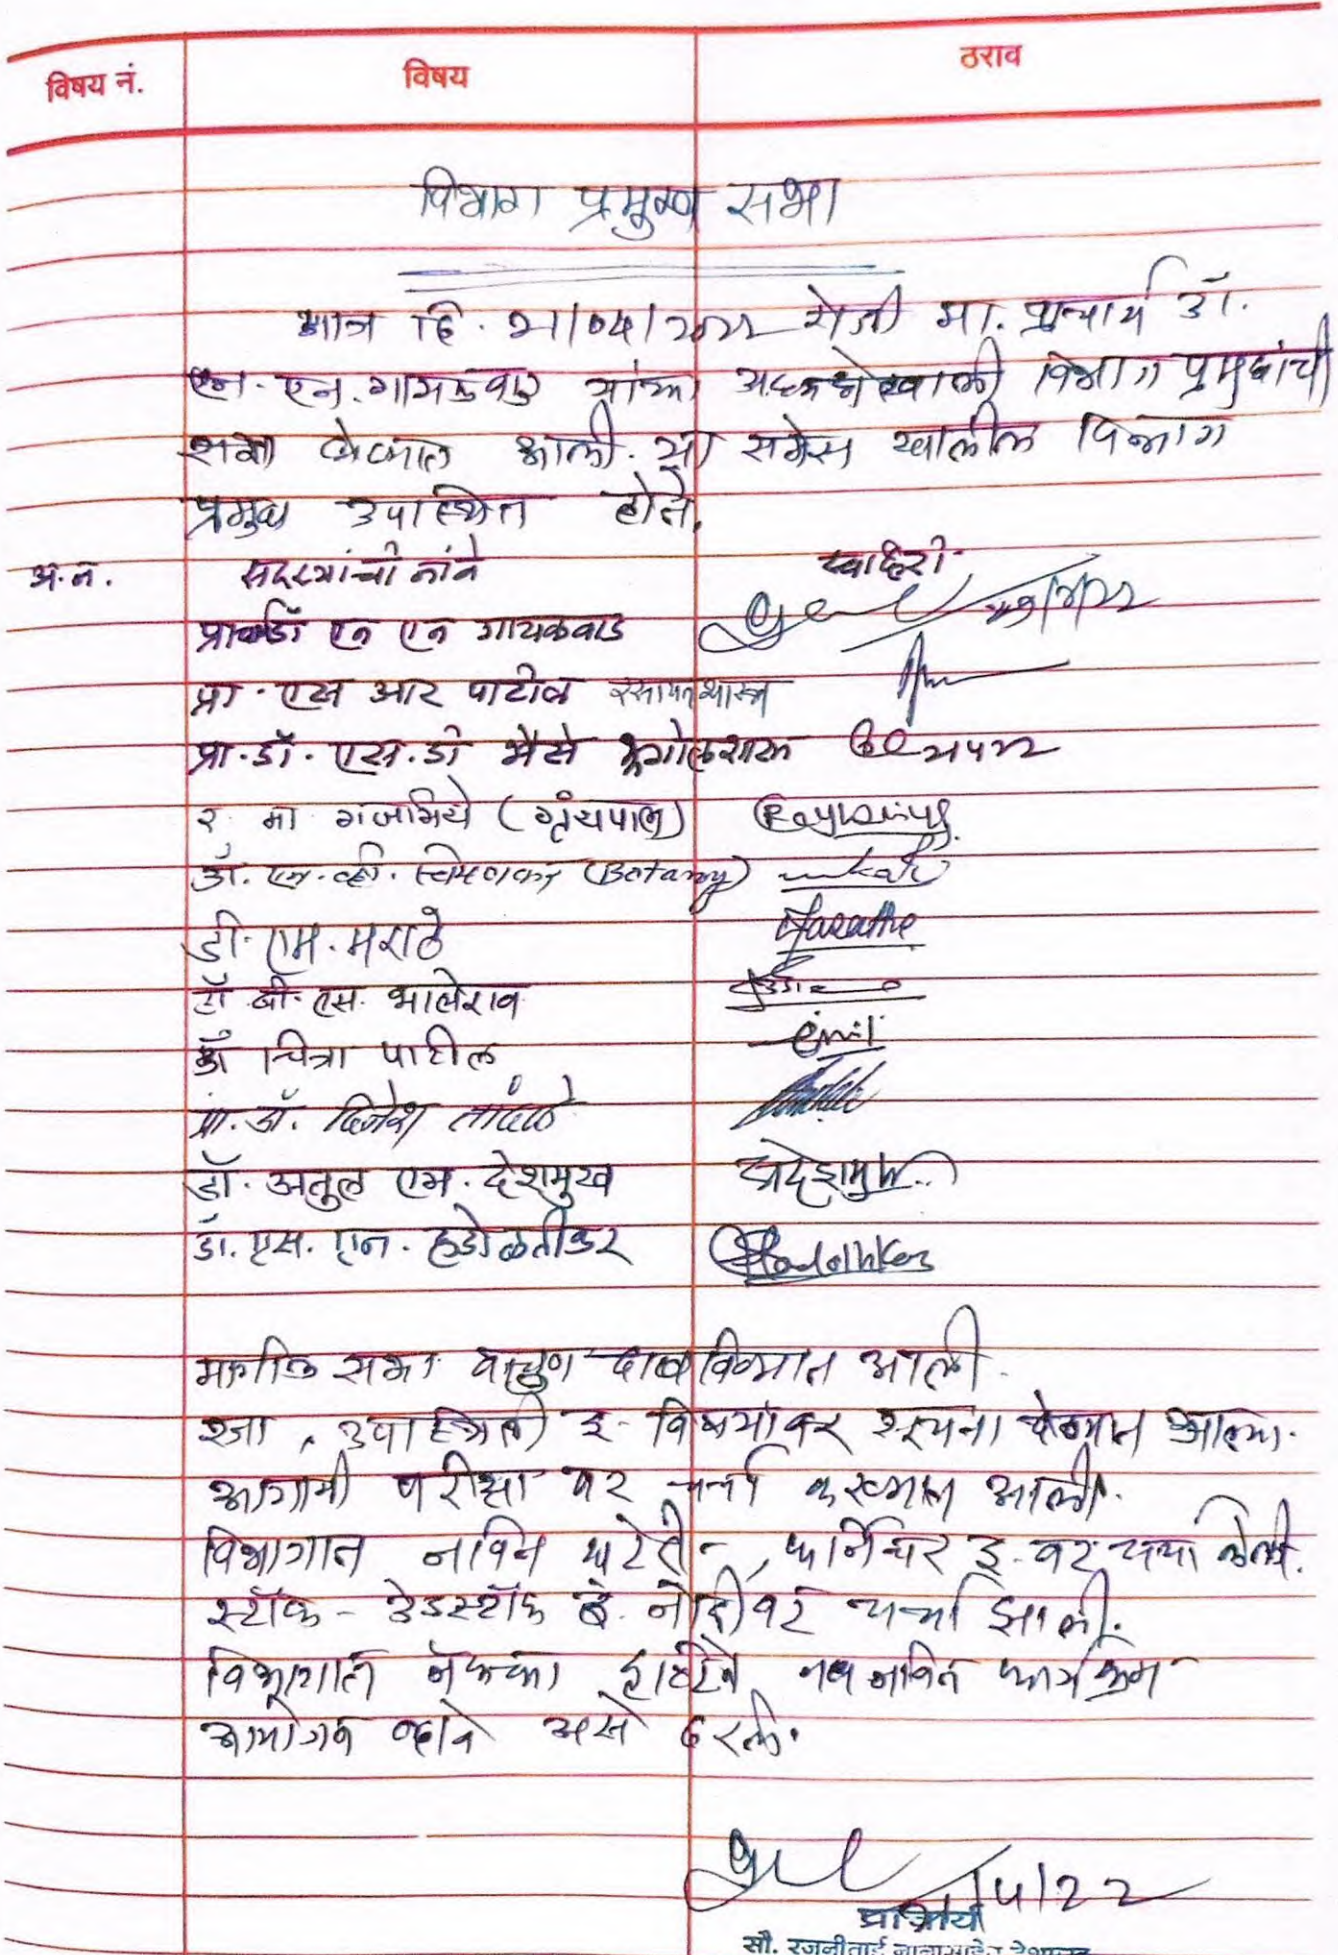 विषय नं. विषय ठराव
विभाग प्रमुख सभा
आज दि. २१/०५/२०२२ रोजी मा. प्राचार्य डॉ.
एन. एन. गायकवाड यांच्या अध्यक्षतेखाली विभाग प्रमुखांची
सभा घेण्यात आली. या सभेस खालील विभाग
प्रमुख उपस्थित होते.
अ.न. सदस्यांची नांवे स्वाक्षरी
डॉ एन एन गायकवाड
प्रा. एस आर पाटील रसायनशास्त्र
प्रा. डॉ. एस. डी भैसे भूगोलशास्त्र
र. मा. गजभिये (ग्रंथपाल)
डॉ. एन. व्ही. (Botany)
डी. एम. मराठे Marathe
डॉ बी. एस. भालेराव
डॉ चित्रा पाटील
प्रा. डॉ. दिनेश तांदळे
डॉ. अतुल एम. देशमुख देशमुख
डॉ. एस. एन. हडोळतीकर
मागील सभा वाचुण दाखविण्यात आली.
रजा, उपस्थिती इ. विषयांवर सूचना देण्यात आल्या.
आगामी परीक्षा वर चर्चा करण्यात आली.
विभागात नविन खरेदी, फर्निचर इ. वर चर्चा केली.
स्टॉक - डेडस्टॉक इ. नोंदीवर चर्चा झाली.
विभागात नॅकच्या दृष्टीने नव नविन कार्यक्रम
आयोजन व्हावे असे ठरले.
प्राचार्या
सौ. रजनीताई नानासाहेब देशमुख